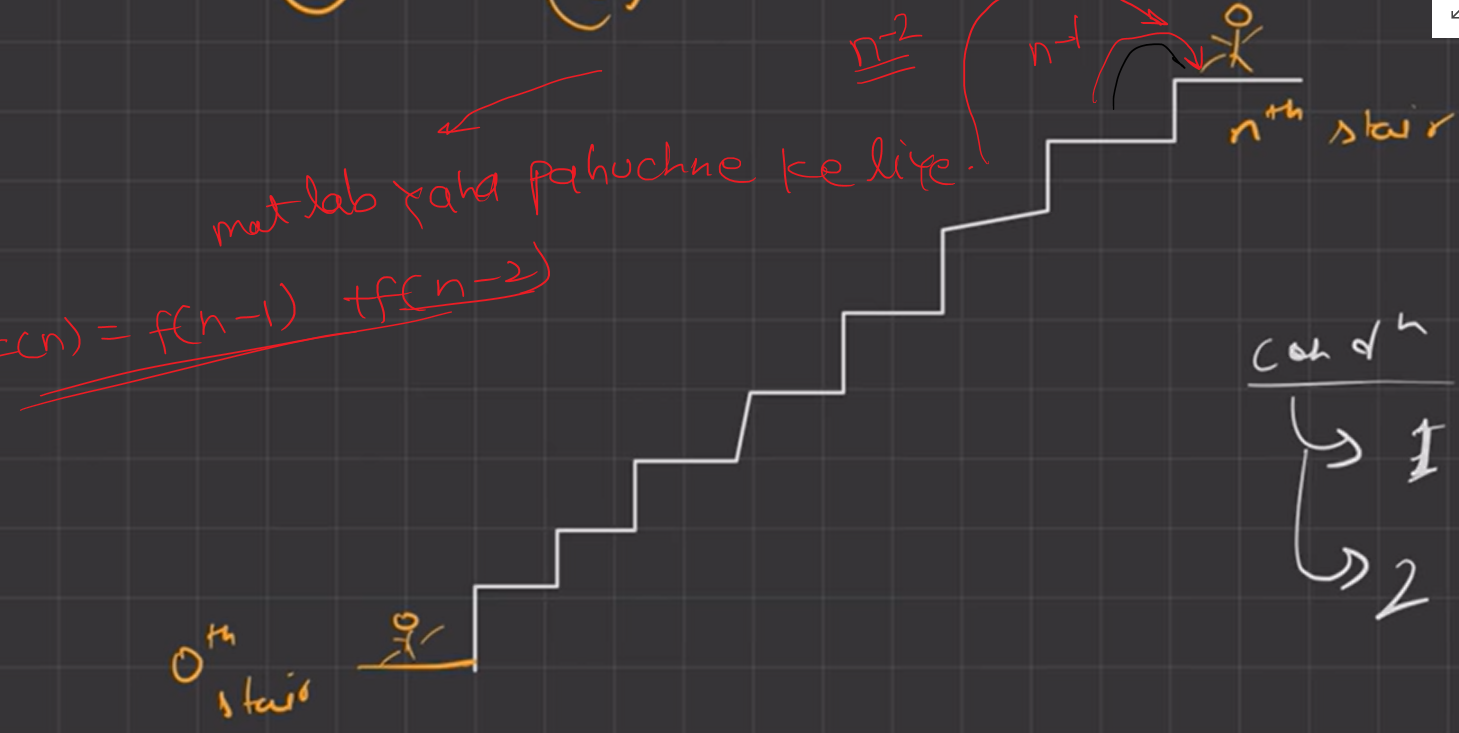 n-2
n-1
nth stair
matlab yaha pahuchne ke liye.
(n) = f(n-1) + f(n-2)
condn
1
2
0th
stair